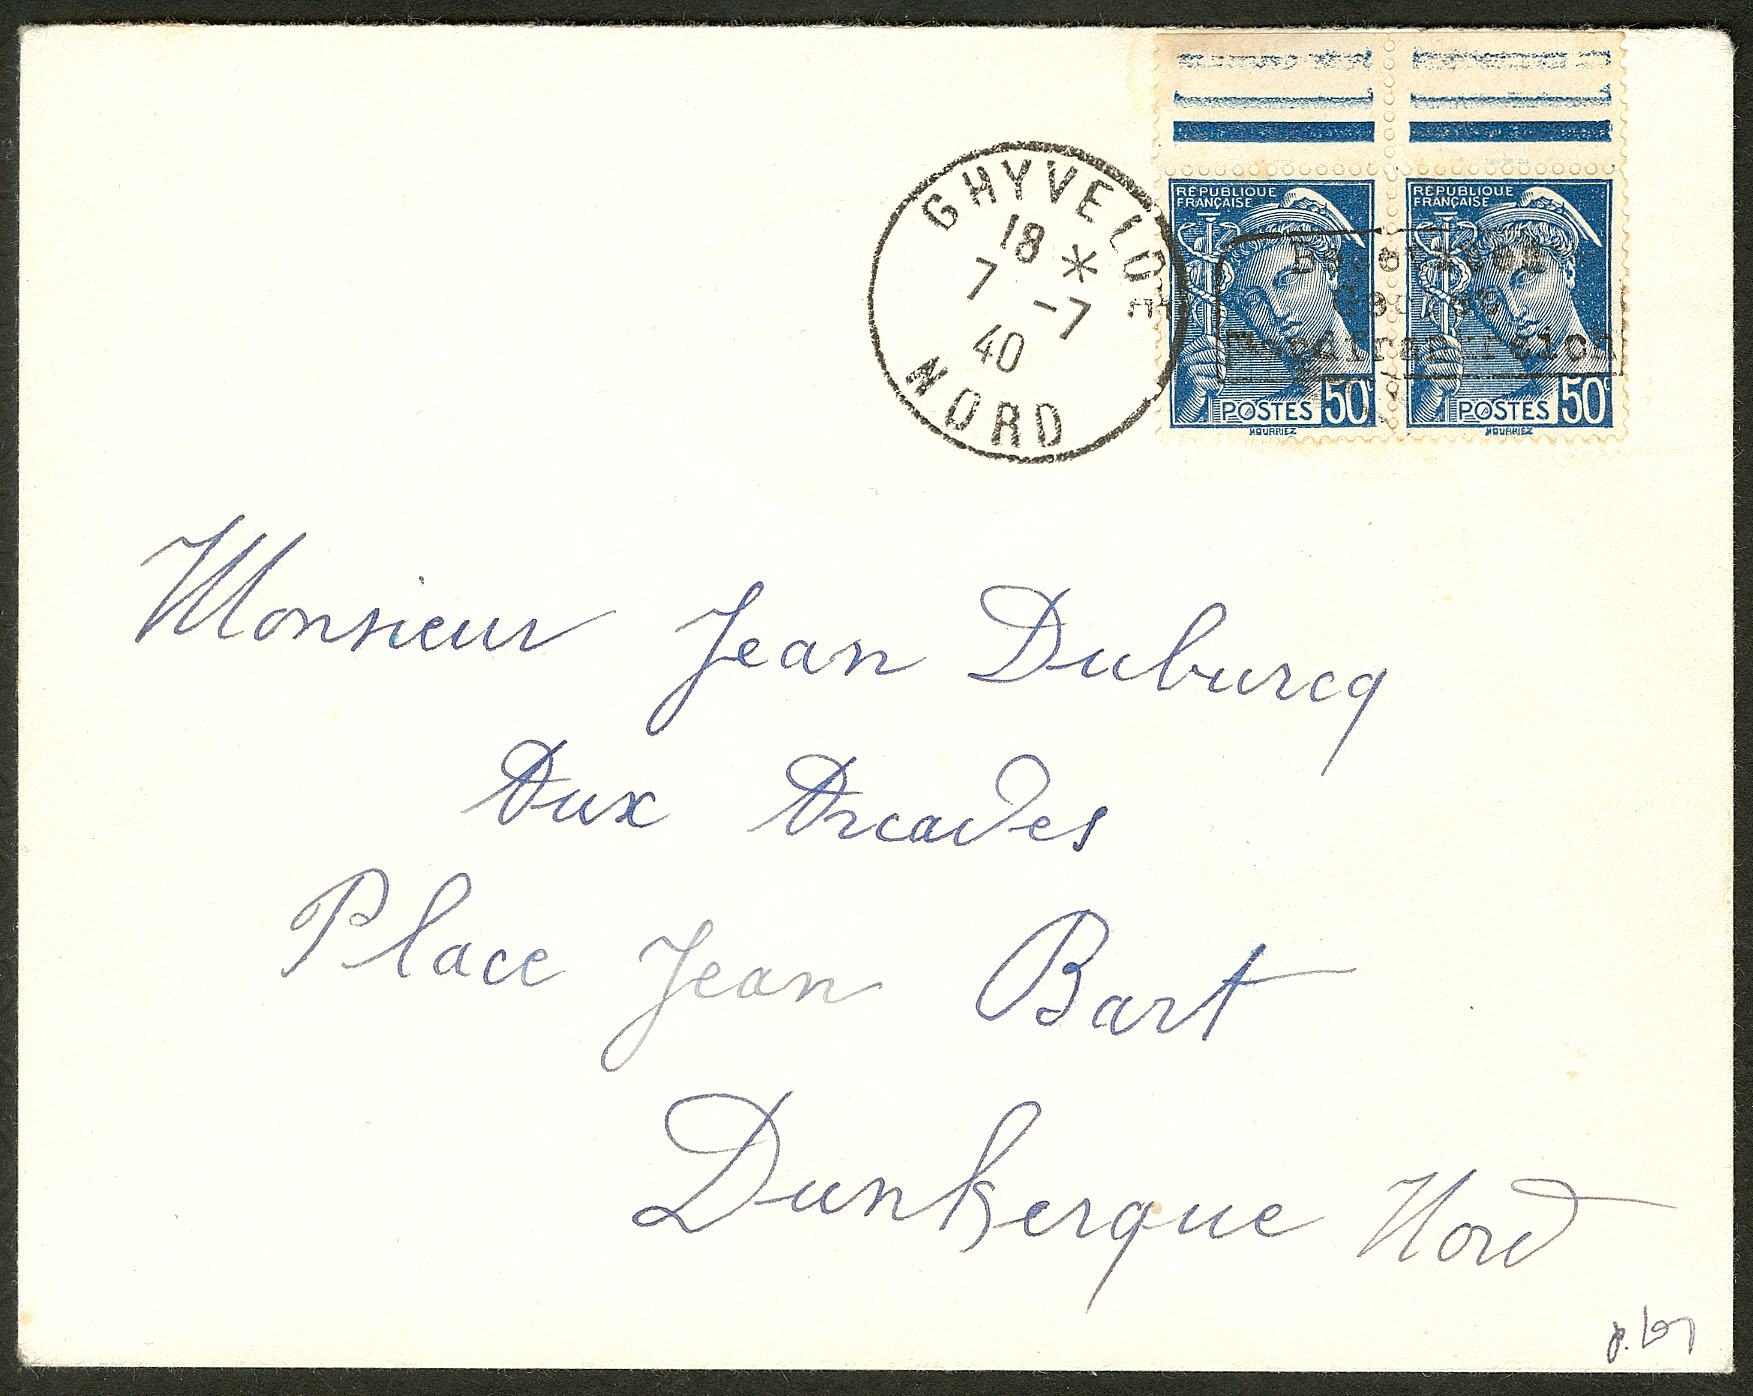 GHYVELDE
18 *
7 -7
40
NORD
RÉPUBLIQUE
FRANÇAISE
POSTES 50c
MOURRIEZ
RÉPUBLIQUE
FRANÇAISE
POSTES 50c
MOURRIEZ
Besetztes
Gebiet
Nordfrankreich
Monsieur Jean Duburcq
Aux Arcades
Place Jean Bart
Dunkerque Nord